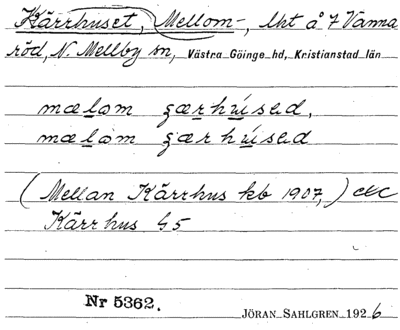 Kärrhuset, Mellom-, lht å 7 Vänna
röd, N. Mellby sn, Västra Göinge hd, Kristianstad län
mælam
mælam
(Mellan Kärrhus kb 1907,) etc
Kärrhus G5
Nr 5362.
JÖRAN SAHLGREN 1926